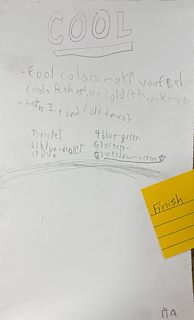 COOL
-Cool colors make you feel
cool & the or cold (think
water Ice and cold days)
1) violet 4 blue-green
2) blue-violet 5) green-
3) blue 6) yellow-green
Finish
MA